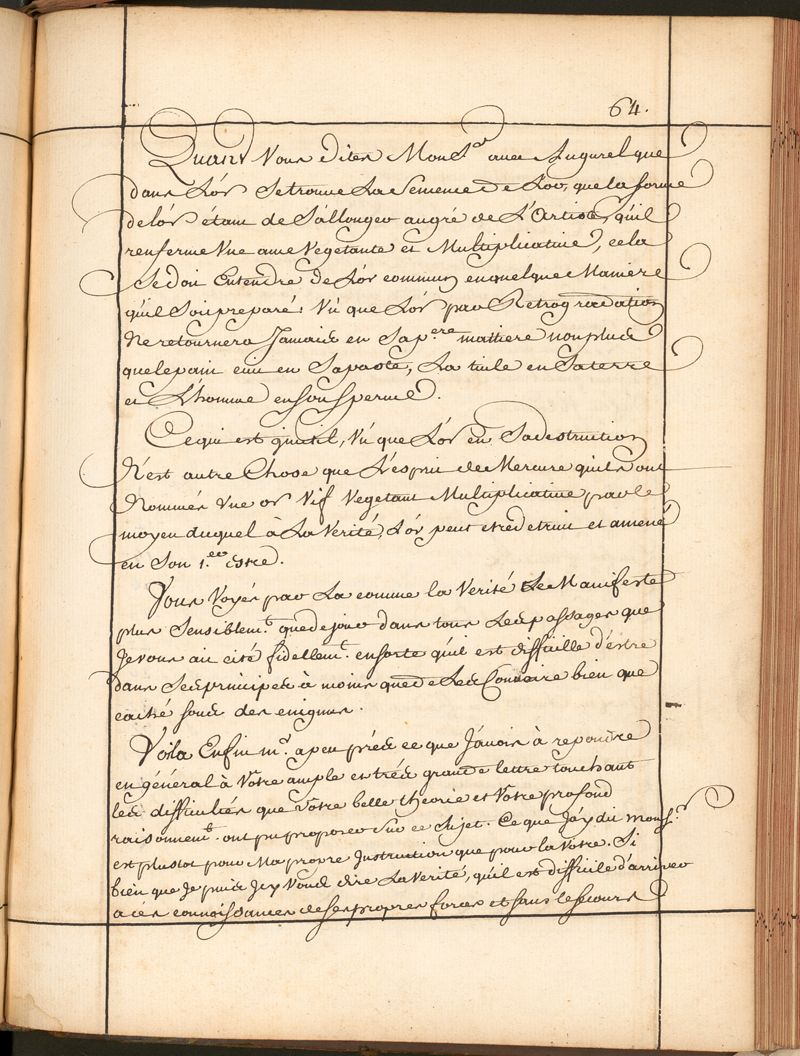 64.
Quand Vous dites Mons.r avec Augurel que
dans L'or Se trouve La Semence de L'or, que la forme
de l'or étant de S'allonger au gré de L'artiste, qu'il
renferme Vne ame Vegetante et Multiplicative, cela
Se doit Entendre de L'or commun en quelque Maniere
qu'il Soit preparé: Vû que L'or par Retrogradation
Ne retournera Jamais en Sa p.ere mattiere non plus
que le pain cuit en Sa paste, La tuile en Sa terre
et L'homme en son Sperme.
Ce qui est inutil, Vû que L'or en Sa destruction
N'est autre Chose que L'esprit de Mercure qu'ils ont
Nommés Vne or Vif Vegetant Multiplicative par le
moyen duquel à La Verité, L'or peut etre detruit et amené
en Son 1.er estre.
Vous Voyés par La comme la Verité Se Manifeste
plus Sensiblem.t que de jour dans tous Les passages que
Je vous ai cité fidellem.t en sorte qu'il est difficille d'estre
dans Ses principes à moins que de Les Connaire bien que
caché sous des enigmes.
Voila Enfin m.r a peu prés ce que J'avois à repondre
en général à Votre ample et trés grande lettre touchant
les difficultés que Votre belle theorie et Votre profond
raisonnem.t ont pu proposer Sur ce Sujet. Ce que J'ay dit mons.r
est plustot pour Ma propre Instruction que pour la Votre. Si
bien que Je puis Icy Vous dire La Verité, qu'il est difficile d'arriver
a ces connoissances de ses propres forces et sans le secours